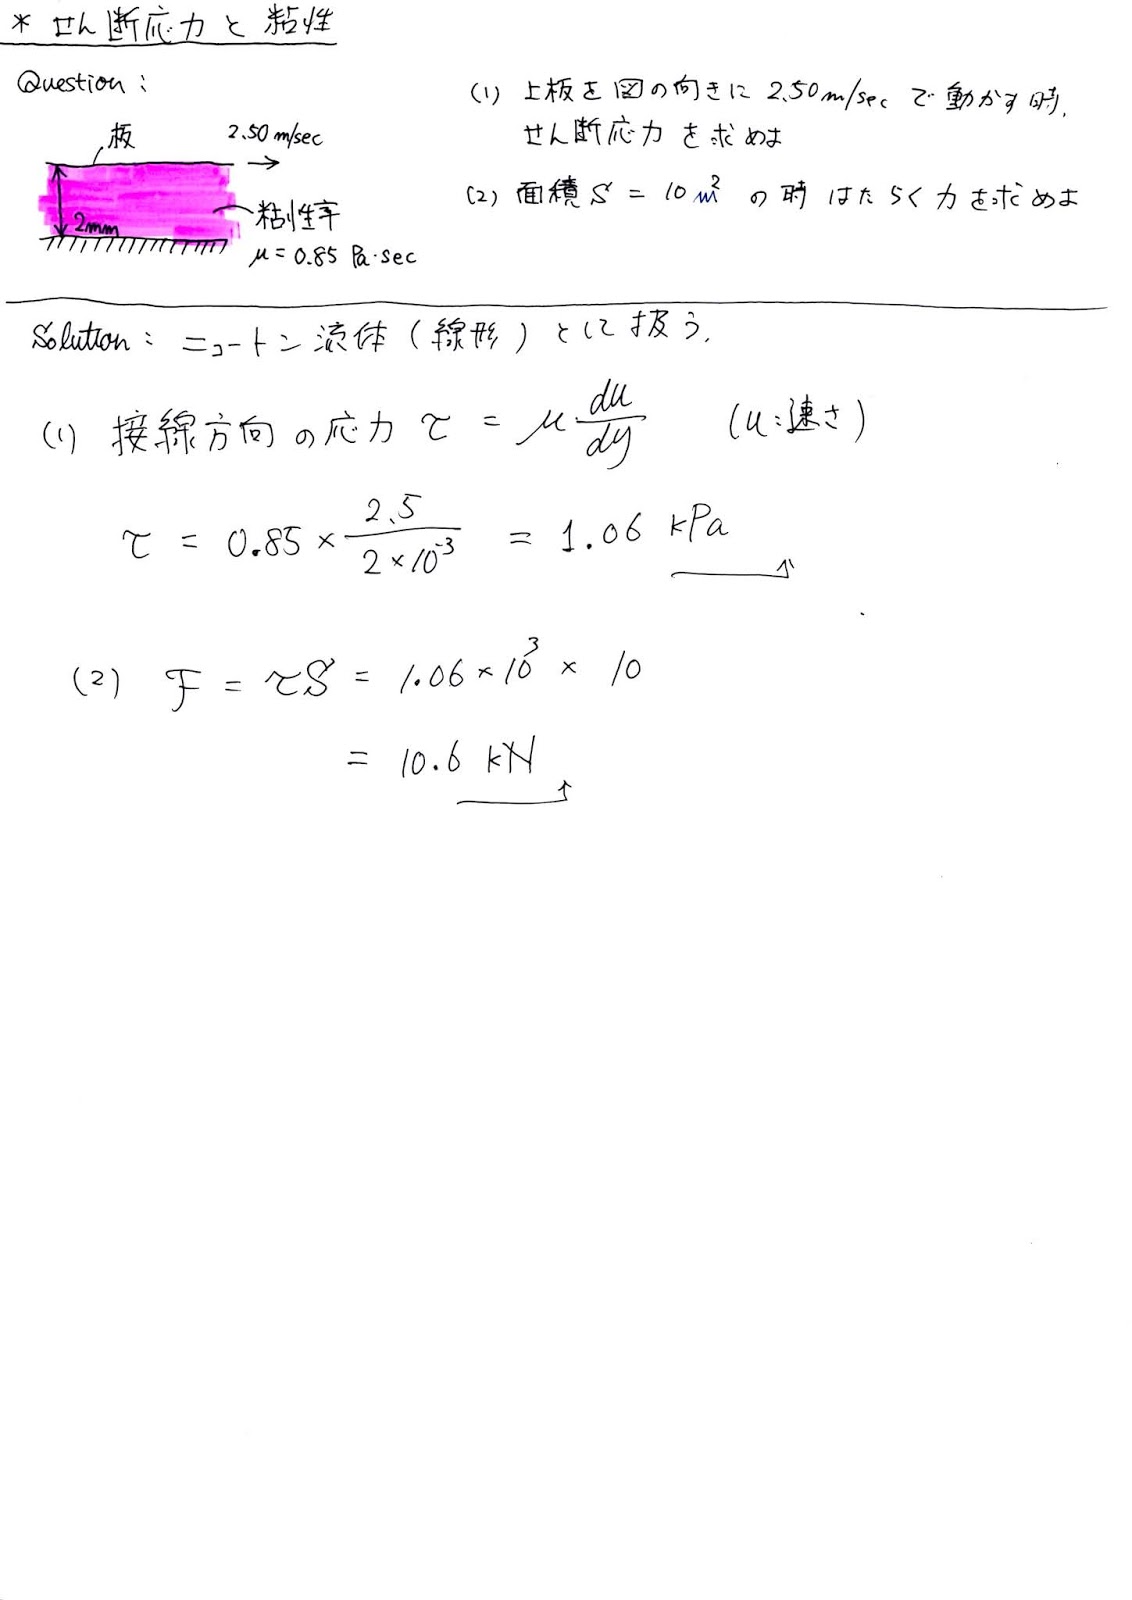 * せん断応力と粘性
Question :
板
2.50 m/sec
2mm
粘性率
μ = 0.85 Pa·sec
(1) 上板を図の向きに 2.50m/sec で動かす時,
せん断応力を求めよ
(2) 面積 S = 10 m² の時 はたらく力を求めよ
Solution : ニュートン流体 (線形) として扱う.
(1) 接線方向の応力 τ = μ・du/dy (u:速さ)
τ = 0.85 × 2.5/2×10⁻³ = 1.06 kPa
(2) F = τS = 1.06×10³ × 10
= 10.6 kN